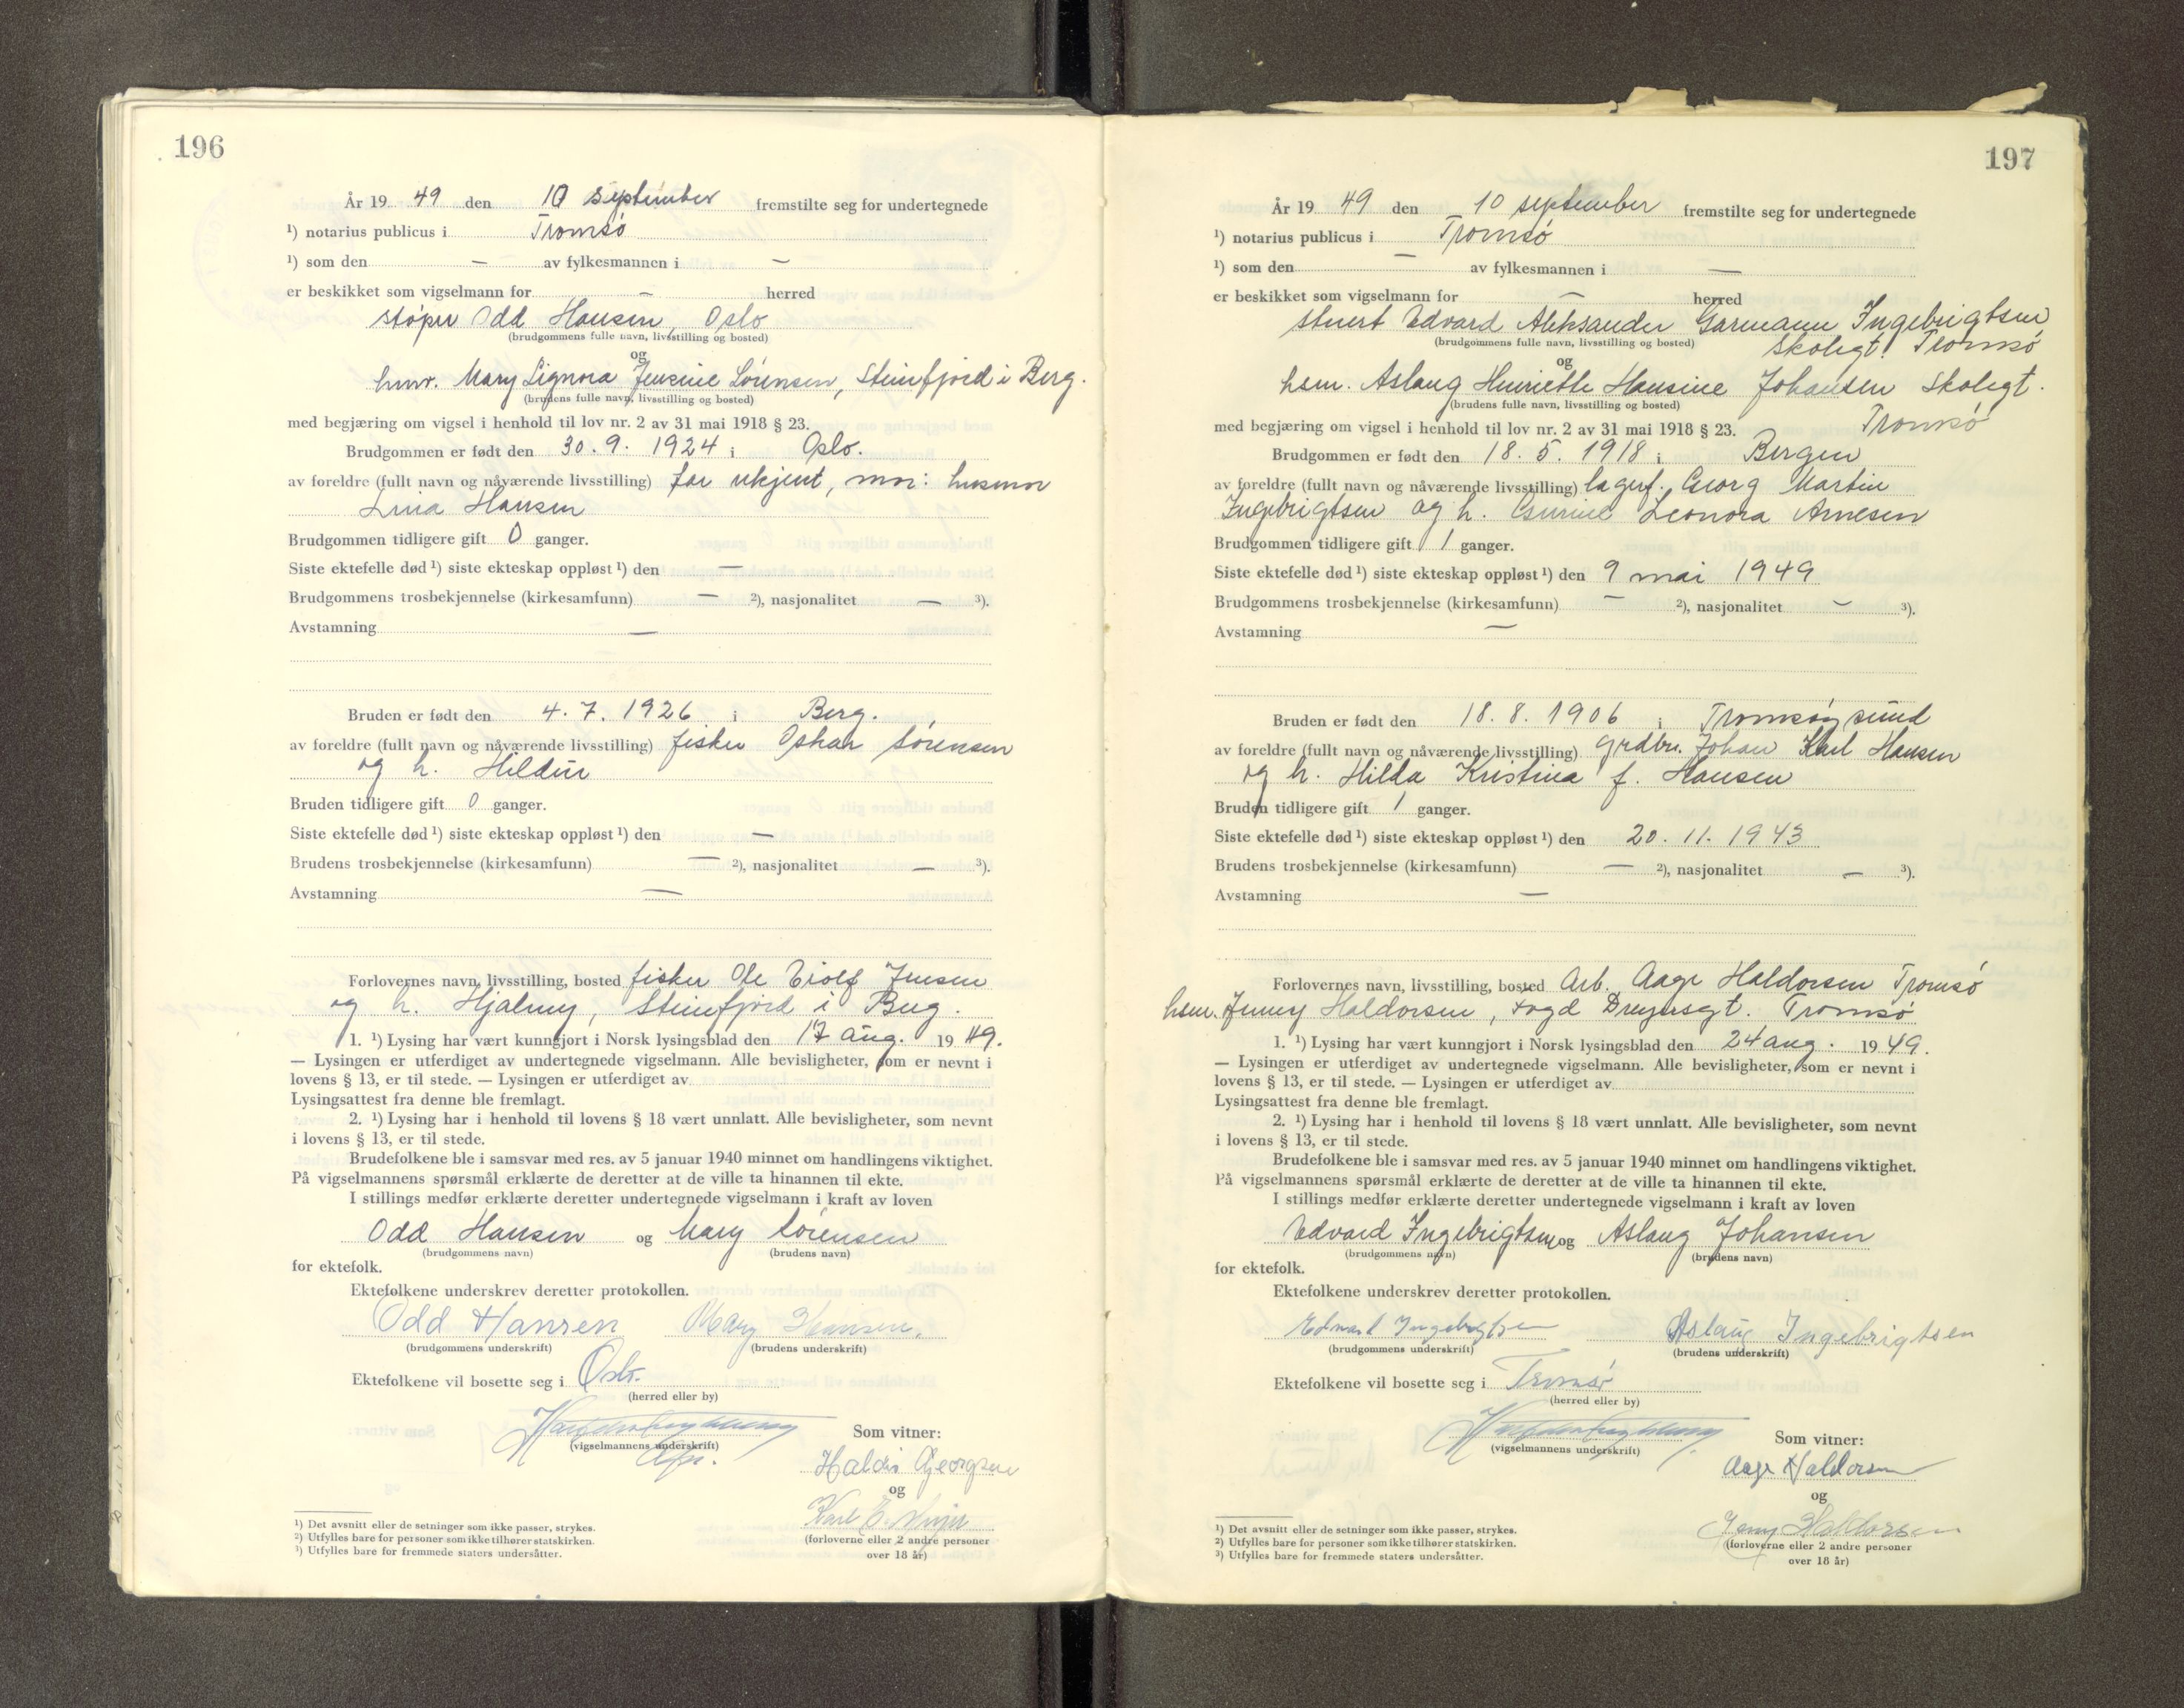 196
År 19 49 den 10 september fremstilte seg for undertegnede
¹) notarius publicus i Tromsø
¹) som den — av fylkesmannen i —
er beskikket som vigselmann for — herred
støper Odd Hansen, Oslo
(brudgommens fulle navn, livsstilling og bosted)
og
husm. Mary Signora Jensine Sørensen, Steinfjord i Berg.
(brudens fulle navn, livsstilling og bosted)
med begjæring om vigsel i henhold til lov nr. 2 av 31 mai 1918 § 23.
Brudgommen er født den 30. 9. 1924 i Oslo.
av foreldre (fullt navn og nåværende livsstilling) far ukjent, mor: husmor
Lina Hansen
Brudgommen tidligere gift 0 ganger.
Siste ektefelle død ¹) siste ekteskap oppløst ¹) den —
Brudgommens trosbekjennelse (kirkesamfunn) — ²), nasjonalitet — ³).
Avstamning —
Bruden er født den 4. 7. 1926 i Berg.
av foreldre (fullt navn og nåværende livsstilling) fisker Oskar Sørensen
og h. Hildur
Bruden tidligere gift 0 ganger.
Siste ektefelle død ¹) siste ekteskap oppløst ¹) den —
Brudens trosbekjennelse (kirkesamfunn) — ²), nasjonalitet — ³).
Avstamning —
Forlovernes navn, livsstilling, bosted fisker Ole Eiolf Jensen
og h. Hjalmy, Steinfjord i Berg.
1. ¹) Lysing har vært kunngjort i Norsk lysingsblad den 17 aug. 1949.
— Lysingen er utferdiget av undertegnede vigselmann. Alle bevisligheter, som er nevnt i
lovens § 13, er til stede. — Lysingen er utferdiget av
Lysingsattest fra denne ble fremlagt.
2. ¹) Lysing har i henhold til lovens § 18 vært unnlatt. Alle bevisligheter, som nevnt
i lovens § 13, er til stede.
Brudefolkene ble i samsvar med res. av 5 januar 1940 minnet om handlingens viktighet.
På vigselmannens spørsmål erklærte de deretter at de ville ta hinannen til ekte.
I stillings medfør erklærte deretter undertegnede vigselmann i kraft av loven
Odd Hansen og Mary Sørensen
(brudgommens navn) (brudens navn)
for ektefolk.
Ektefolkene underskrev deretter protokollen.
Odd Hansen Mary Hansen.
(brudgommens underskrift) (brudens underskrift)
Ektefolkene vil bosette seg i Oslo.
(herred eller by)
(vigselmannens underskrift)
Som vitner:
Haldis Georgsen
og
Karl E.
(forloverne eller 2 andre personer
over 18 år)
¹) Det avsnitt eller de setninger som ikke passer, strykes.
²) Utfylles bare for personer som ikke tilhører statskirken.
³) Utfylles bare for fremmede staters undersåtter.
197
År 19 49 den 10 september fremstilte seg for undertegnede
¹) notarius publicus i Tromsø
¹) som den — av fylkesmannen i —
er beskikket som vigselmann for — herred
stuert Edvard Aleksander Garmann Ingebrigtsen
(brudgommens fulle navn, livsstilling og bosted) Skolegt. Tromsø
og
hsm. Aslaug Henriette Hansine Johansen Skolegt.
(brudens fulle navn, livsstilling og bosted)
Tromsø
med begjæring om vigsel i henhold til lov nr. 2 av 31 mai 1918 § 23.
Brudgommen er født den 18. 5. 1918 i Bergen
av foreldre (fullt navn og nåværende livsstilling) lagerf. Georg Martin
Ingebrigtsen og h. Leonora Arnesen
Brudgommen tidligere gift 1 ganger.
Siste ektefelle død ¹) siste ekteskap oppløst ¹) den 9 mai 1949
Brudgommens trosbekjennelse (kirkesamfunn) — ²), nasjonalitet — ³).
Avstamning —
Bruden er født den 18. 8. 1906 i Tromsøysund
av foreldre (fullt navn og nåværende livsstilling) grdbr. Johan Karl Hansen
og h. Hilda Kristina f. Hansen
Bruden tidligere gift 1 ganger.
Siste ektefelle død ¹) siste ekteskap oppløst ¹) den 20. 11. 1943
Brudens trosbekjennelse (kirkesamfunn) — ²), nasjonalitet — ³).
Avstamning —
Forlovernes navn, livsstilling, bosted Arb. Aage Haldorsen Tromsø
hsm. Jenny Haldorsen, Fogd Dreyersgt. Tromsø
1. ¹) Lysing har vært kunngjort i Norsk lysingsblad den 24 aug. 1949.
— Lysingen er utferdiget av undertegnede vigselmann. Alle bevisligheter, som er nevnt i
lovens § 13, er til stede. — Lysingen er utferdiget av
Lysingsattest fra denne ble fremlagt.
2. ¹) Lysing har i henhold til lovens § 18 vært unnlatt. Alle bevisligheter, som nevnt
i lovens § 13, er til stede.
Brudefolkene ble i samsvar med res. av 5 januar 1940 minnet om handlingens viktighet.
På vigselmannens spørsmål erklærte de deretter at de ville ta hinannen til ekte.
I stillings medfør erklærte deretter undertegnede vigselmann i kraft av loven
Edvard Ingebrigtsen og Aslaug Johansen
(brudgommens navn) (brudens navn)
for ektefolk.
Ektefolkene underskrev deretter protokollen.
Edvard Ingebrigtsen Aslaug Ingebrigtsen
(brudgommens underskrift) (brudens underskrift)
Ektefolkene vil bosette seg i Tromsø
(herred eller by)
(vigselmannens underskrift)
Som vitner:
Aage Haldorsen
og
Jenny Haldorsen
(forloverne eller 2 andre personer
over 18 år)
¹) Det avsnitt eller de setninger som ikke passer, strykes.
²) Utfylles bare for personer som ikke tilhører statskirken.
³) Utfylles bare for fremmede staters undersåtter.